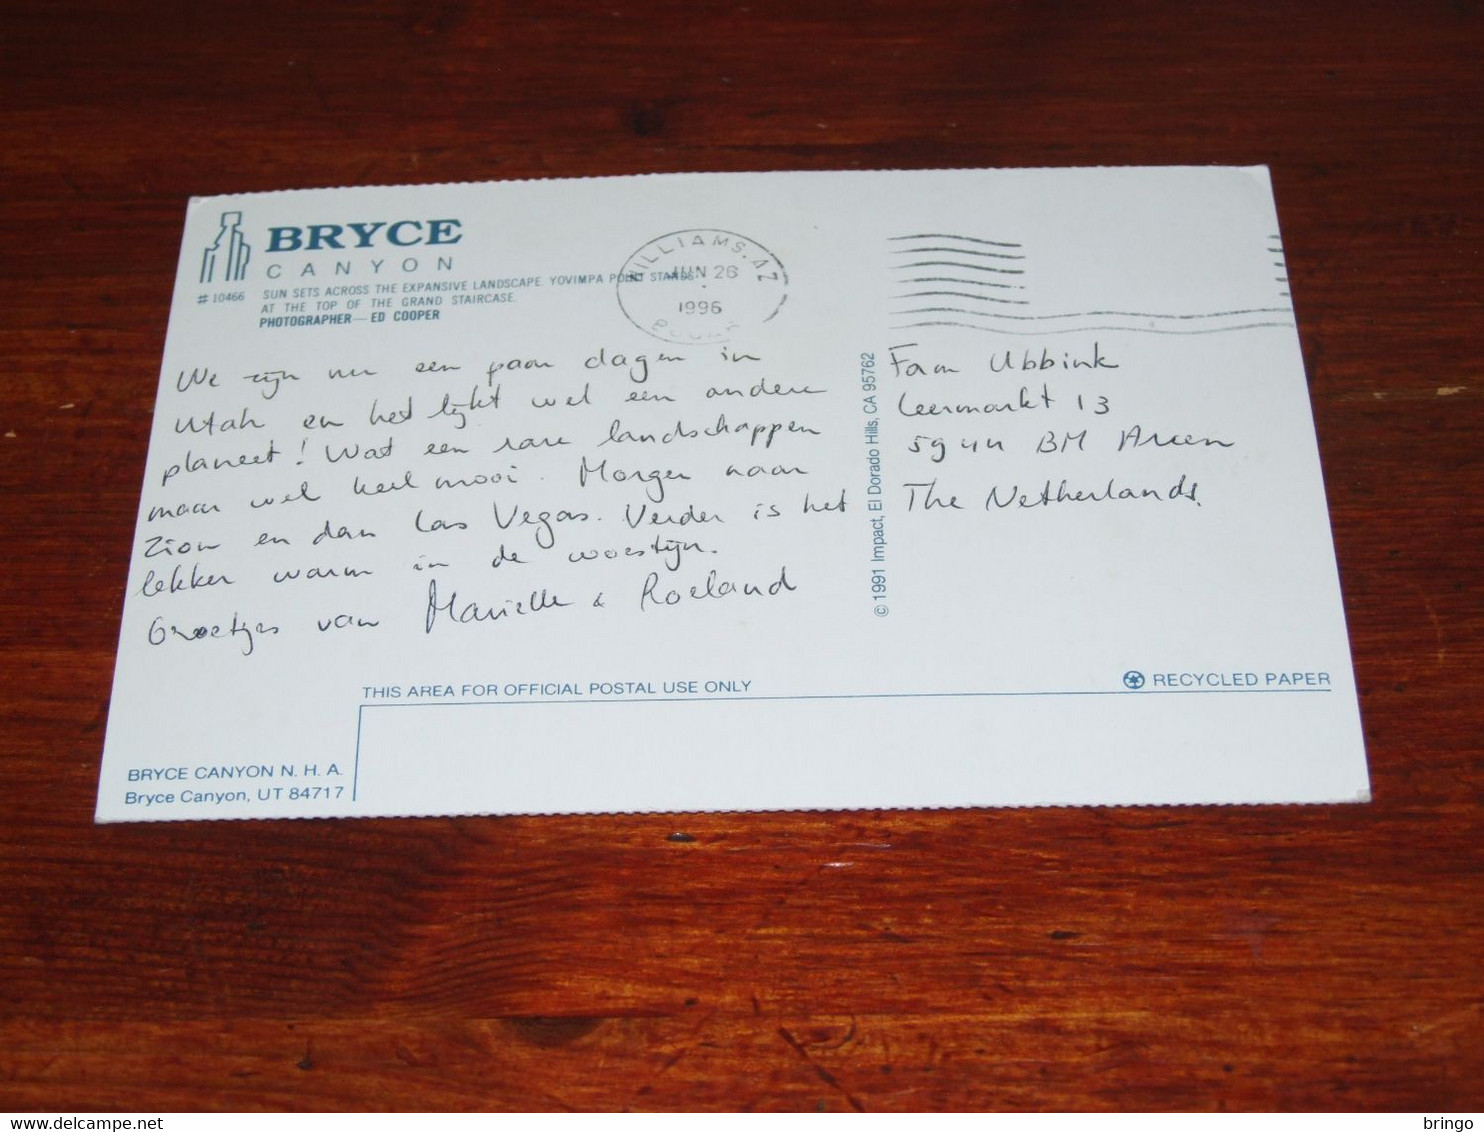 BRYCE
CANYON
# 10466
SUN SETS ACROSS THE EXPANSIVE LANDSCAPE. YOVIMPA POINT STANDS
AT THE TOP OF THE GRAND STAIRCASE.
PHOTOGRAPHER—ED COOPER
WILLIAMS, AZ
JUN 26
1996
We zijn nu een paar dagen in
Utah en het lijkt wel een andere
planeet! Wat een rare landschappen
maar wel heel mooi. Morgen naar
Zion en dan Las Vegas. Verder is het
lekker warm in de woestijn.
Groetjes van Mariëlle & Roeland
© 1991 Impact, El Dorado Hills, CA 95762
Fam Ubbink
Leermarkt 13
5944 BM Arcen
The Netherlands.
THIS AREA FOR OFFICIAL POSTAL USE ONLY
RECYCLED PAPER
BRYCE CANYON N. H. A.
Bryce Canyon, UT 84717
bringo